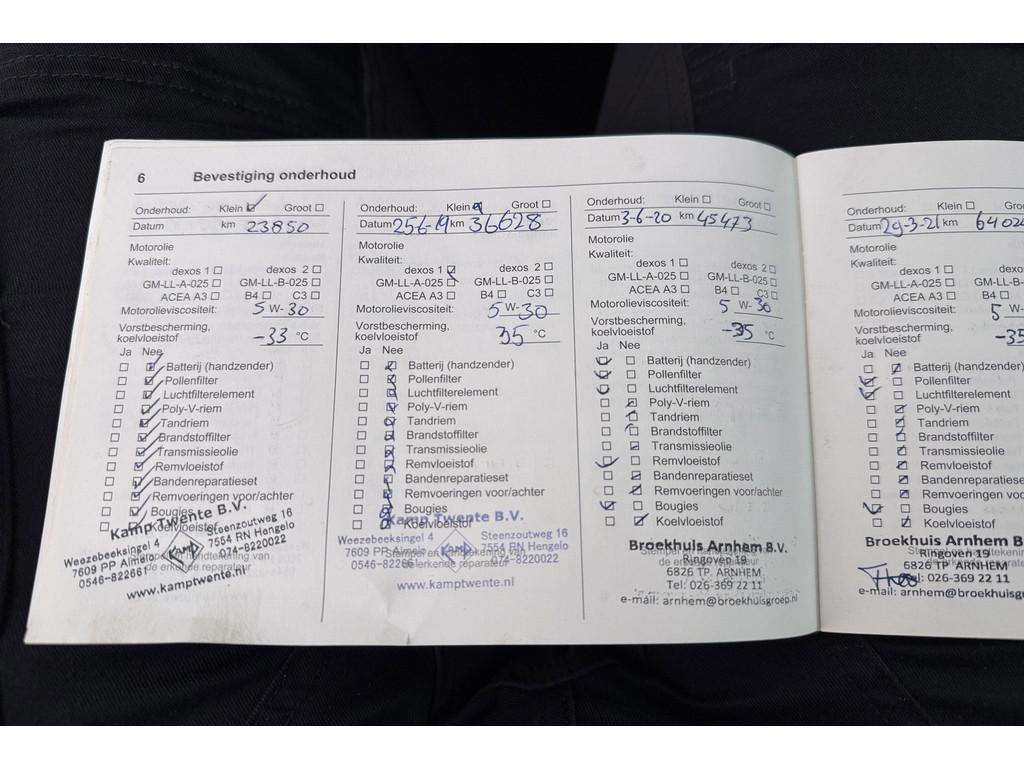 6 Bevestiging onderhoud
Onderhoud: Klein Groot
Datum km 23850
Motorolie
Kwaliteit:
dexos 1 dexos 2
GM-LL-A-025 GM-LL-B-025
ACEA A3 B4 C3
Motorolieviscositeit: 5 W-30
Vorstbescherming,
koelvloeistof -33 °C
Ja Nee
Batterij (handzender)
Pollenfilter
Luchtfilterelement
Poly-V-riem
Tandriem
Brandstoffilter
Transmissieolie
Remvloeistof
Bandenreparatieset
Remvoeringen voor/achter
Bougies
Koelvloeistof
Kamp Twente B.V.
Weezebeeksingel 4 Steenzoutweg 16
7609 PP Almelo KAMP 7554 RN Hengelo
0546-822661 074-8220022
de erkende reparateur
www.kamptwente.nl
Onderhoud: Klein Groot
Datum 256-19 km 36628
Motorolie
Kwaliteit:
dexos 1 dexos 2
GM-LL-A-025 GM-LL-B-025
ACEA A3 B4 C3
Motorolieviscositeit: 5 W-30
Vorstbescherming,
koelvloeistof 35 °C
Ja Nee
Batterij (handzender)
Pollenfilter
Luchtfilterelement
Poly-V-riem
Tandriem
Brandstoffilter
Transmissieolie
Remvloeistof
Bandenreparatieset
Remvoeringen voor/achter
Bougies
Koelvloeistof
Kamp Twente B.V.
Weezebeeksingel 4 Steenzoutweg 16
7609 PP Almelo KAMP 7554 RN Hengelo
0546-822661 074-8220022
de erkende reparateur
www.kamptwente.nl
Onderhoud: Klein Groot
Datum 3-6-20 km 45473
Motorolie
Kwaliteit:
dexos 1 dexos 2
GM-LL-A-025 GM-LL-B-025
ACEA A3 B4 C3
Motorolieviscositeit: 5 W-30
Vorstbescherming,
koelvloeistof -35 °C
Ja Nee
Batterij (handzender)
Pollenfilter
Luchtfilterelement
Poly-V-riem
Tandriem
Brandstoffilter
Transmissieolie
Remvloeistof
Bandenreparatieset
Remvoeringen voor/achter
Bougies
Koelvloeistof
Broekhuis Arnhem B.V.
Ringoven 19
de erkende reparateur
6826 TP ARNHEM
Tel: 026-369 22 11
e-mail: arnhem@broekhuisgroep.nl
Onderhoud: Klein Groot
Datum 29-3-21 km
Motorolie
Kwaliteit:
dexos 1
GM-LL-A-025 GM-LL-B-
ACEA A3 B4
Motorolieviscositeit: 5 W-
Vorstbescherming,
koelvloeistof -35
Ja Nee
Batterij (handzender)
Pollenfilter
Luchtfilterelement
Poly-V-riem
Tandriem
Brandstoffilter
Transmissieolie
Remvloeistof
Bandenreparatieset
Remvoeringen vo
Bougies
Koelvloeistof
Broekhuis Arnhem B
Ringoven 19
6826 TP ARNHEM
026-369 22 11
e-mail: arnhem@broekhuisg